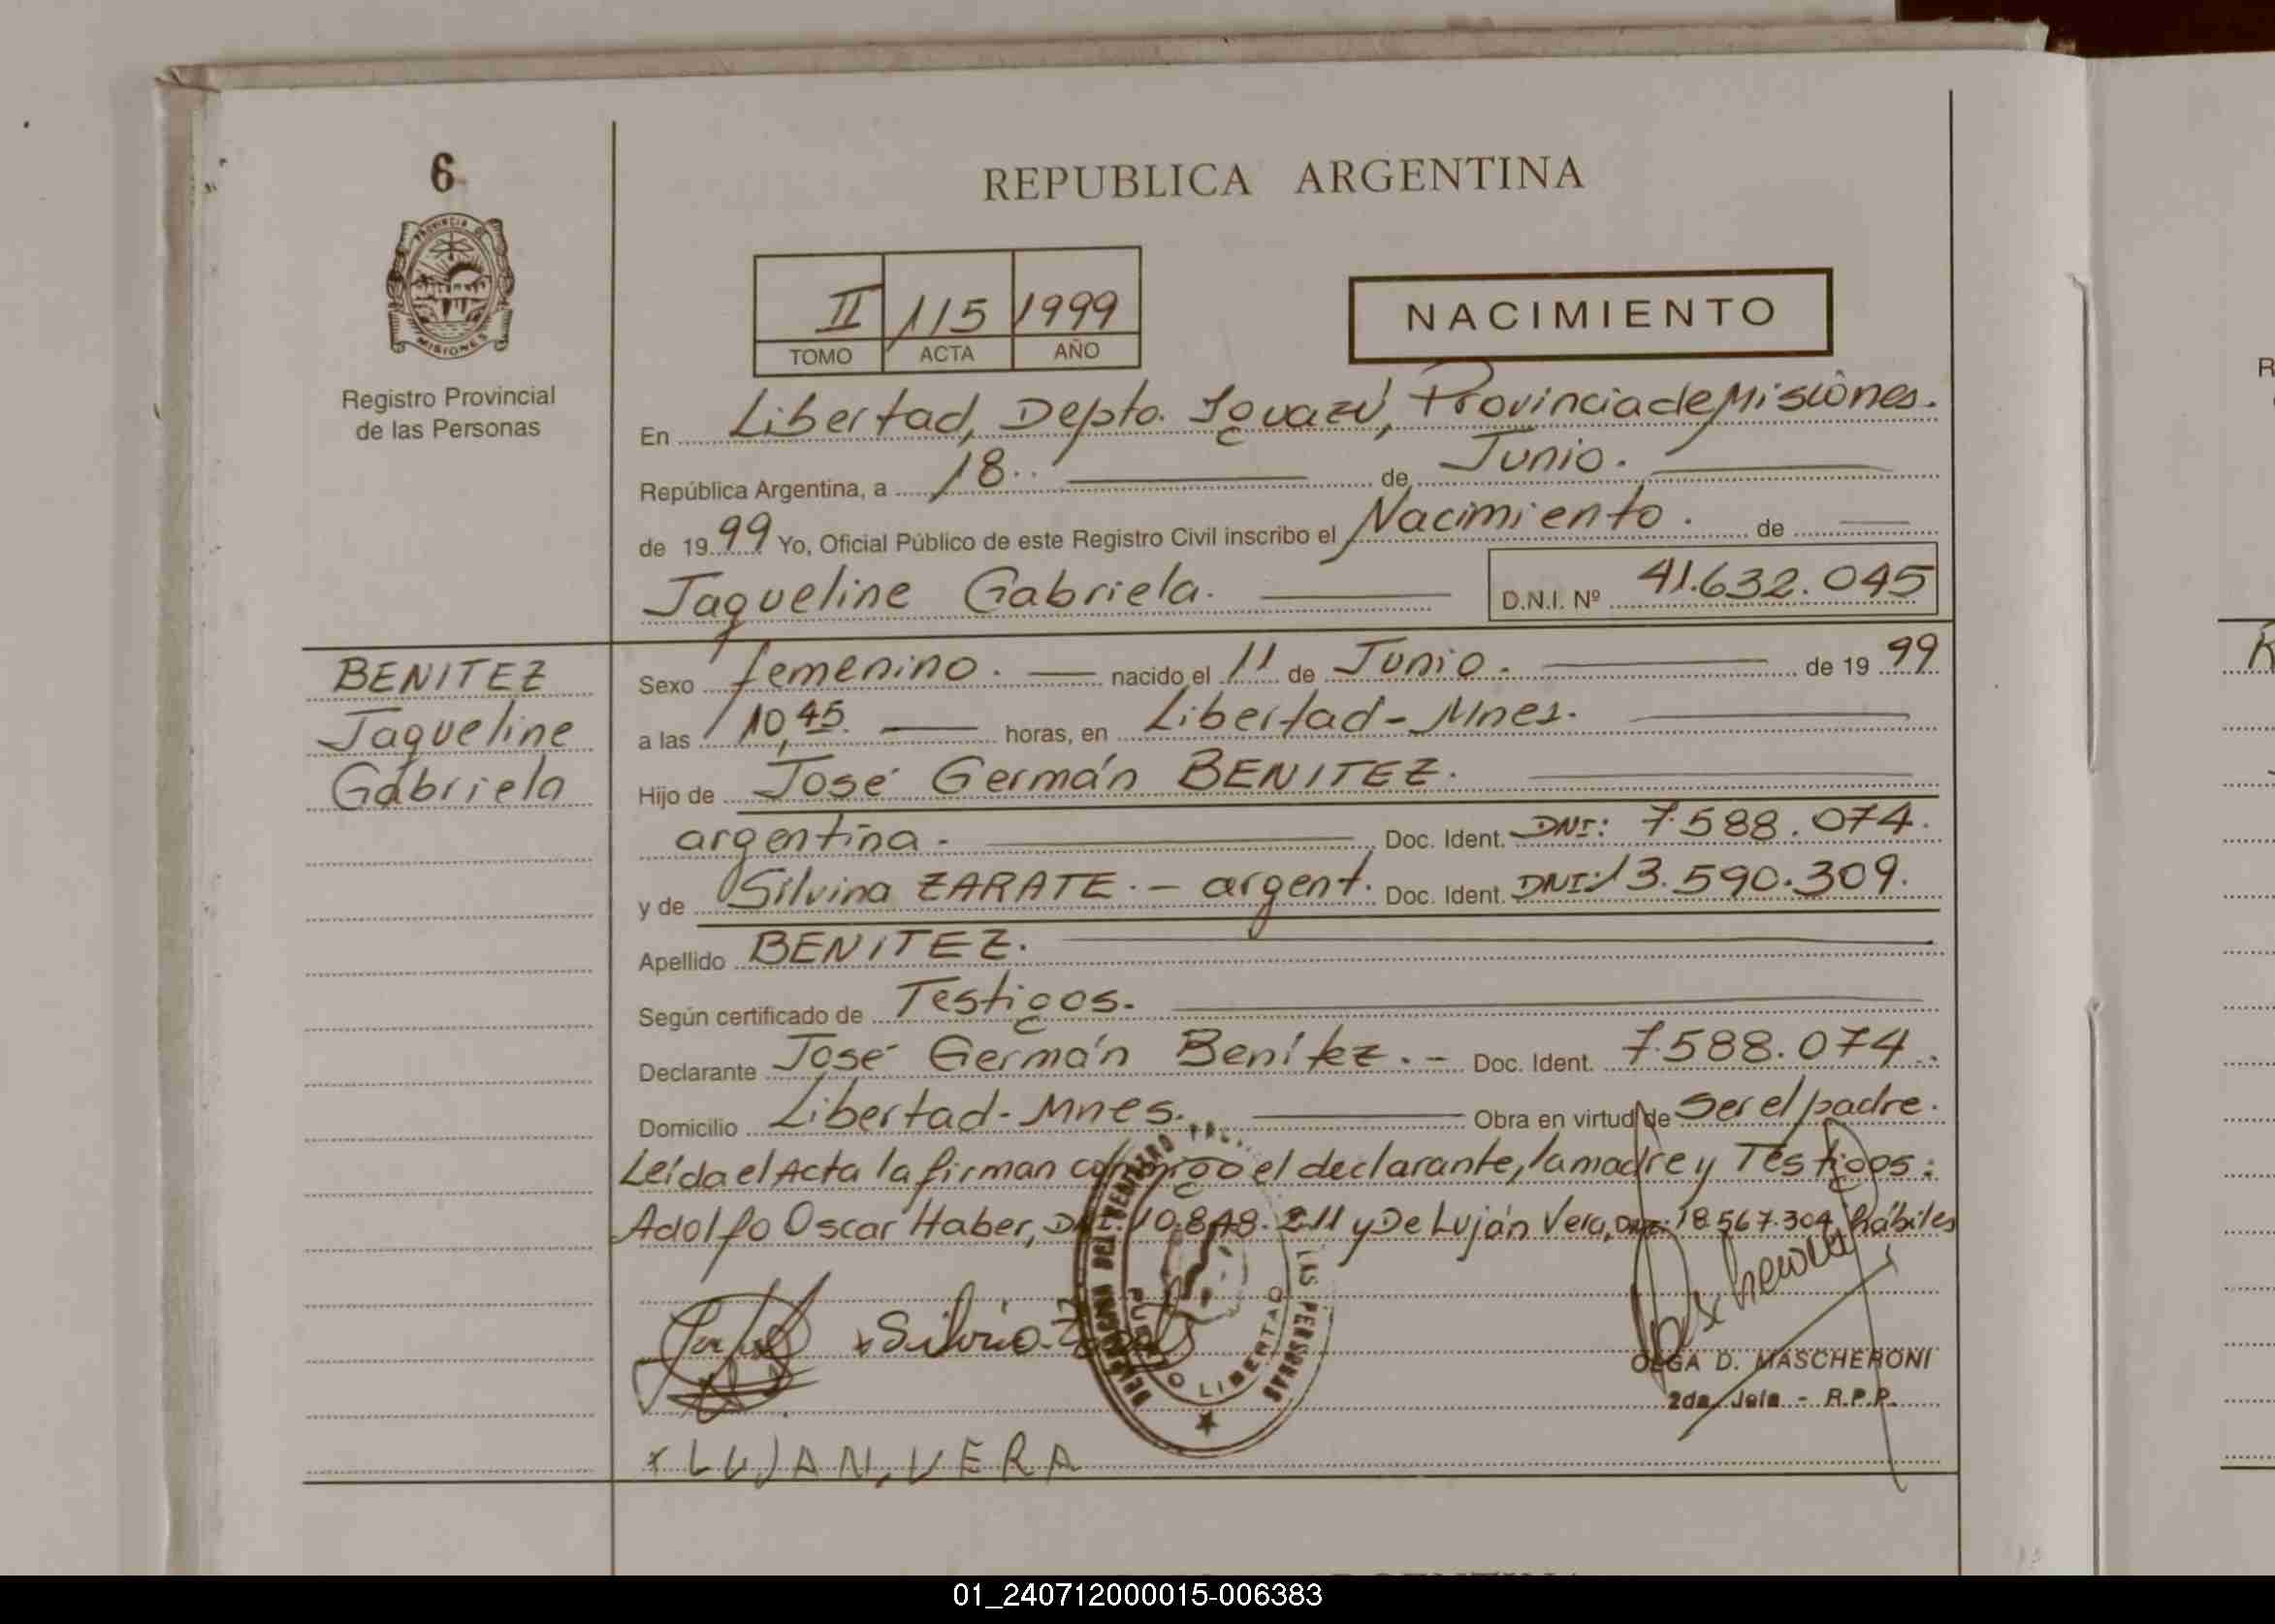 6
REPUBLICA ARGENTINA
PROVINCIA DE
MISIONES
Registro Provincial
de las Personas
II 115 1999
TOMO ACTA AÑO
NACIMIENTO
En Libertad, Depto. Iguazú, Provincia de Misiones.
República Argentina, a 18.. de Junio.
de 1999 Yo, Oficial Público de este Registro Civil inscribo el Nacimiento. de
Jaqueline Gabriela.
D.N.I. Nº 41.632.045
BENITEZ
Jaqueline
Gabriela
Sexo femenino. nacido el 11 de Junio. de 1999
a las 10,45. horas, en Libertad-Mnes.
Hijo de José Germán BENITEZ.
argentina. Doc. Ident. DNI: 7.588.074.
y de Silvina ZARATE.- argent. Doc. Ident. DNI:13.590.309.
Apellido BENITEZ.
Según certificado de Testigos.
Declarante José Germán Benítez.- Doc. Ident. 7.588.074.
Domicilio Libertad-Mnes. Obra en virtud de ser el padre.
Leída el Acta la firman conmigo el declarante, la madre y Testigos:
Adolfo Oscar Haber, DNI: 10.848.211 y De Luján Vera, DNI: 18.567.304, hábiles
LAS PERSONAS
PUERTO LIBERTAD
OLGA D. MASCHERONI
2da. Jefa - R.P.P.
x LUJAN, VERA
01_240712000015-006383